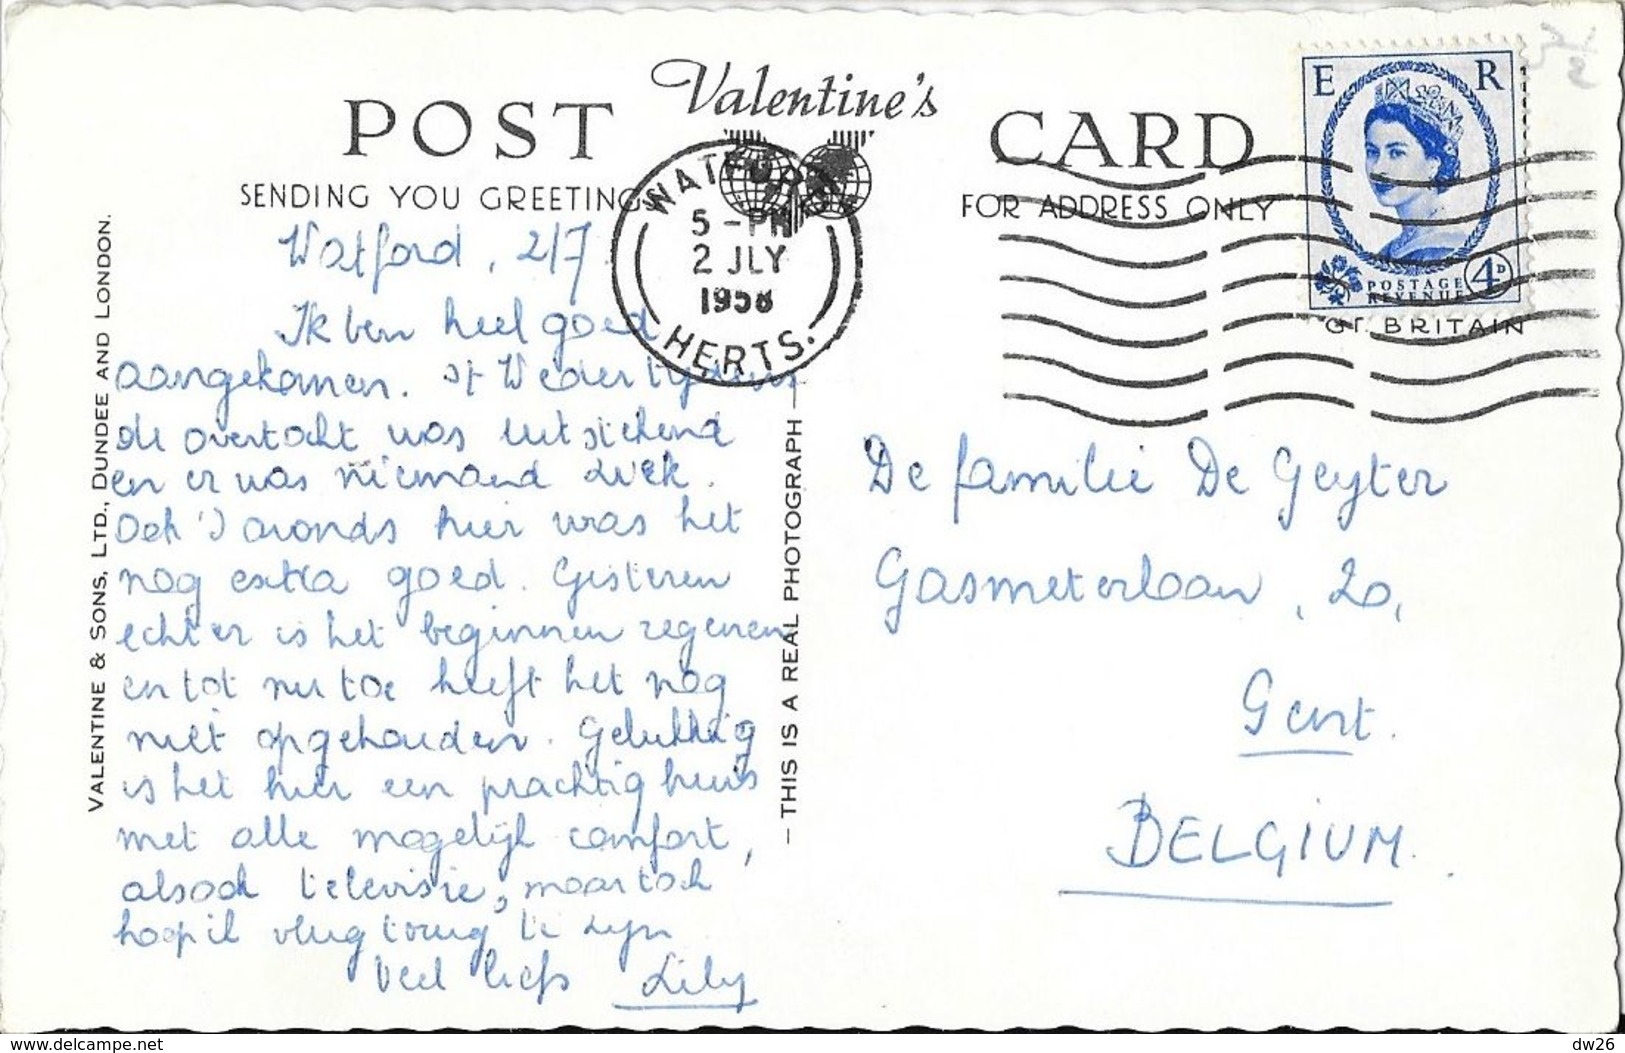 Valentine's
POST CARD
SENDING YOU GREETINGS
FOR ADDRESS ONLY
WATFORD
5 - PM
2 JLY
1958
HERTS.
E R
POSTAGE
REVENUE
4D
GT. BRITAIN
VALENTINE & SONS, LTD., DUNDEE AND LONDON.
Watford, 2/7
Ik ben heel goed
aangekomen. 't Weder tijdens
de overtocht was uitstekend
en er was niemand ziek.
Ook 's avonds hier was het
nog extra goed. Gisteren
echter is het beginnen regenen
en tot nu toe heeft het nog
niet opgehouden. Gelukkig
is het hier een prachtig huis
met alle mogelijk comfort,
alsook televisie, maar toch
hoop ik vlug terug te zijn
Veel liefs Lily
— THIS IS A REAL PHOTOGRAPH —
De familie De Geyter
Gasmeterlaan, 20,
Gent.
BELGIUM.
delcampe.net
dw26